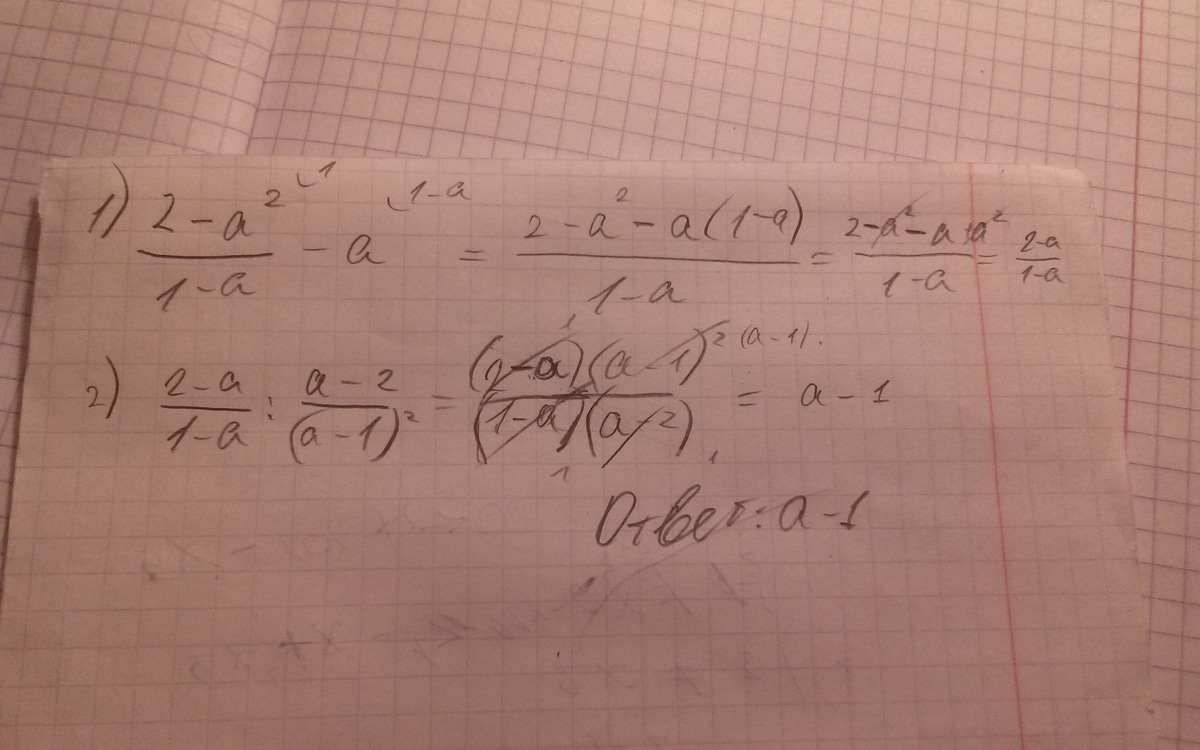 1) (2-a²)/(1-a) ⌣1 - a ⌣1-a = (2-a²-a(1-a))/(1-a) = (2-a²-a+a²)/(1-a) = (2-a)/(1-a)
2) (2-a)/(1-a) : (a-2)/(a-1)² = 1 (2-a)(a-1)² (a-1). / (1-a)(a-2) 1 1 = a-1
Ответ: a-1